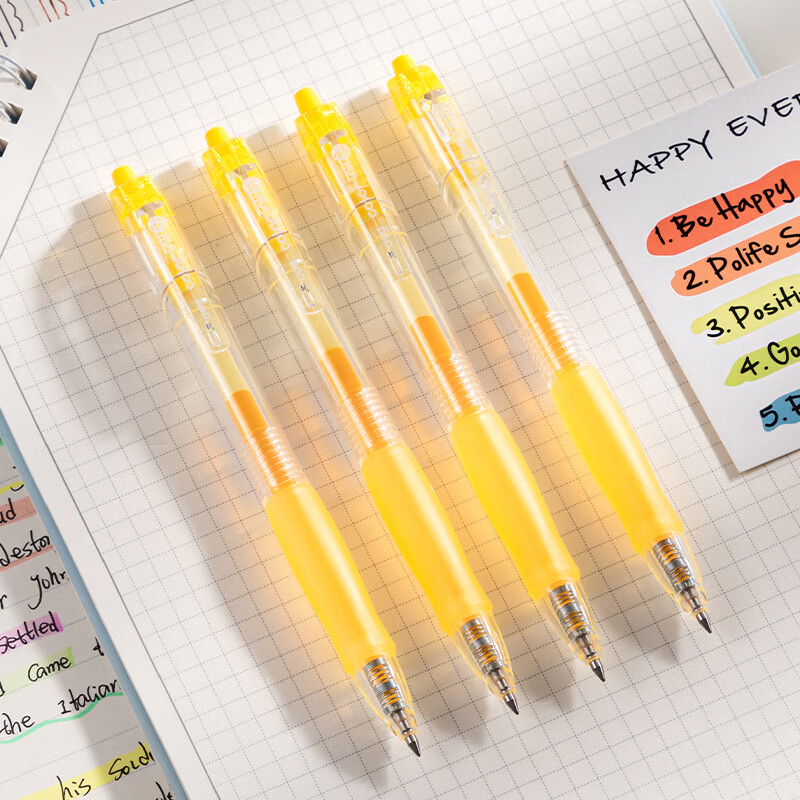 HAPPY EVER
1. Be Happy
2. Polife S
3. Positi
4. Go
5.
ud
deston
r John
settled
d Came t
the Italian
his Soldi